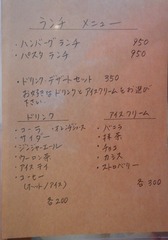 ランチ メニュー
・ハンバーグ ランチ 950
・パスタ ランチ 950
・ドリンク デザートセット 350
お好きなドリンクとアイスクリームをお選び
下さい
ドリンク
・コーラ ・オレンジジュース
・サイダー
・ジンジャーエール
・ウーロン茶
・アイスティ
・コーヒー
(ホット/アイス)
各200
アイスクリーム
・バニラ
・抹茶
・チョコ
・カシス
・ストロベリー
各300